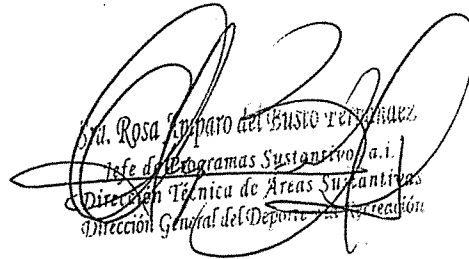 Rosa Amparo del Busto
Jefe de Programas Sustantivos a.i.
Dirección Técnica de Áreas Sustantivas
Dirección General del Deporte y la Recreación